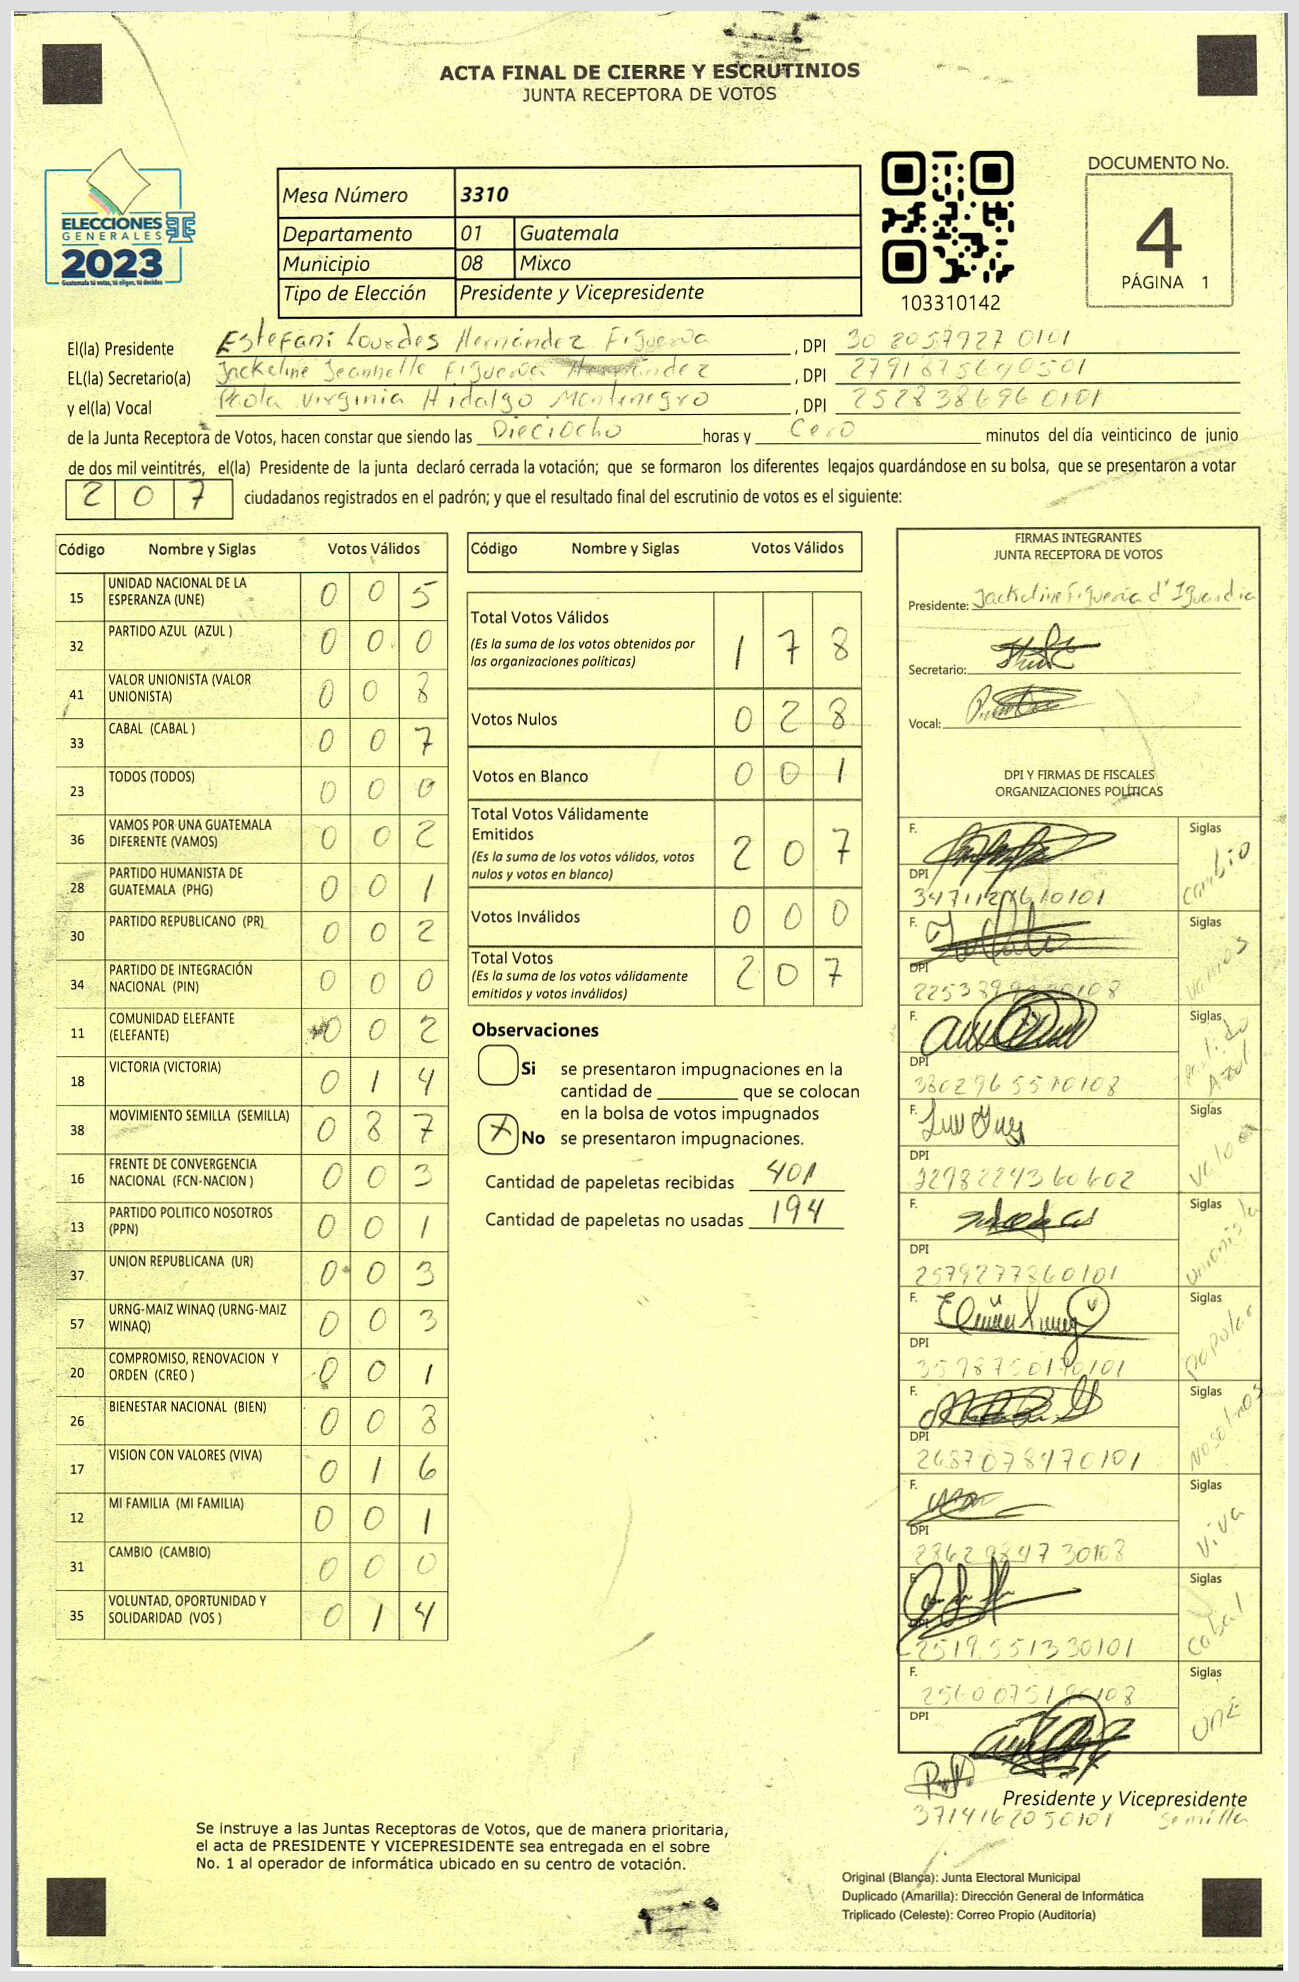 ACTA FINAL DE CIERRE Y ESCRUTINIOS
JUNTA RECEPTORA DE VOTOS
ELECCIONES
GENERALES
2023
Guatemala tú votas, tú eliges, tú decides
Mesa Número 3310
Departamento 01 Guatemala
Municipio 08 Mixco
Tipo de Elección Presidente y Vicepresidente
103310142
DOCUMENTO No.
4
PÁGINA 1
El(la) Presidente Estefani Lourdes Hernández Figueroa , DPI
EL(la) Secretario(a) Jackeline Jeannette Figueroa Hernández , DPI
y el(la) Vocal Paola Virginia Hidalgo Montenegro , DPI
de la Junta Receptora de Votos, hacen constar que siendo las Dieciocho horas y Cero minutos del día veinticinco de junio
de dos mil veintitrés, el(la) Presidente de la junta declaró cerrada la votación; que se formaron los diferentes legajos guardándose en su bolsa, que se presentaron a votar
2 0 7 ciudadanos registrados en el padrón; y que el resultado final del escrutinio de votos es el siguiente:
Código Nombre y Siglas Votos Válidos
15 UNIDAD NACIONAL DE LA
ESPERANZA (UNE) 0 0 5
32 PARTIDO AZUL (AZUL ) 0 0 0
41 VALOR UNIONISTA (VALOR
UNIONISTA) 0 0 8
33 CABAL (CABAL ) 0 0 7
23 TODOS (TODOS) 0 0 0
36 VAMOS POR UNA GUATEMALA
DIFERENTE (VAMOS) 0 0 2
28 PARTIDO HUMANISTA DE
GUATEMALA (PHG) 0 0 1
30 PARTIDO REPUBLICANO (PR) 0 0 2
34 PARTIDO DE INTEGRACIÓN
NACIONAL (PIN) 0 0 0
11 COMUNIDAD ELEFANTE
(ELEFANTE) 0 0 2
18 VICTORIA (VICTORIA) 0 1 4
38 MOVIMIENTO SEMILLA (SEMILLA) 0 8 7
16 FRENTE DE CONVERGENCIA
NACIONAL (FCN-NACION ) 0 0 3
13 PARTIDO POLITICO NOSOTROS
(PPN) 0 0 1
37 UNION REPUBLICANA (UR) 0 0 3
57 URNG-MAIZ WINAQ (URNG-MAIZ
WINAQ) 0 0 3
20 COMPROMISO, RENOVACION Y
ORDEN (CREO ) 0 0 1
26 BIENESTAR NACIONAL (BIEN) 0 0 8
17 VISION CON VALORES (VIVA) 0 1 6
12 MI FAMILIA (MI FAMILIA) 0 0 1
31 CAMBIO (CAMBIO) 0 0 0
35 VOLUNTAD, OPORTUNIDAD Y
SOLIDARIDAD (VOS ) 0 1 4
Código Nombre y Siglas Votos Válidos
Total Votos Válidos
(Es la suma de los votos obtenidos por
las organizaciones políticas) 1 7 8
Votos Nulos 0 2 8
Votos en Blanco 0 0 1
Total Votos Válidamente
Emitidos
(Es la suma de los votos válidos, votos
nulos y votos en blanco) 2 0 7
Votos Inválidos 0 0 0
Total Votos
(Es la suma de los votos válidamente
emitidos y votos inválidos) 2 0 7
Observaciones
Si se presentaron impugnaciones en la
cantidad de ________ que se colocan
en la bolsa de votos impugnados
X No se presentaron impugnaciones.
Cantidad de papeletas recibidas 401
Cantidad de papeletas no usadas 194
FIRMAS INTEGRANTES
JUNTA RECEPTORA DE VOTOS
Presidente: Jackeline Figueroa
Secretario:
Vocal:
DPI Y FIRMAS DE FISCALES
ORGANIZACIONES POLÍTICAS
F. Siglas
DPI cambio
F. Siglas
DPI vamos
F. Siglas
DPI partido Azul
F. Siglas
DPI valor
F. Siglas
DPI 2579277360101 unionista
F. Siglas
DPI popular
F. Siglas
DPI 2687078470101 Nosotros
F. Siglas
DPI viva
F. Siglas
DPI 2519551330101 Cabal
F. Siglas
DPI UNE
Presidente y Vicepresidente
3714162050101 semilla
Se instruye a las Juntas Receptoras de Votos, que de manera prioritaria,
el acta de PRESIDENTE Y VICEPRESIDENTE sea entregada en el sobre
No. 1 al operador de informática ubicado en su centro de votación.
Original (Blanca): Junta Electoral Municipal
Duplicado (Amarilla): Dirección General de Informática
Triplicado (Celeste): Correo Propio (Auditoría)